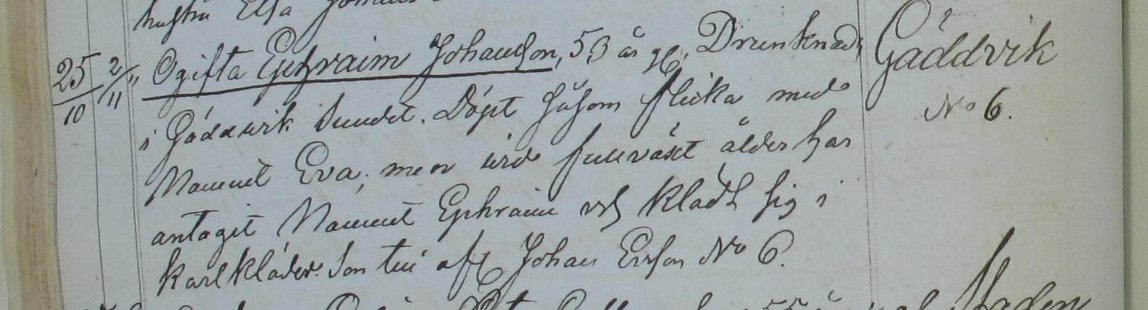 hustru Elsa
25/10 2/11 Ogifta Ephraim Johanson, 53 år gl. Drunknade Gäddvik
i Gäddvik Sundet. Döpt såsom flicka med No 6.
Namnet Eva, men vid fullväxt ålder har
antagit Namnet Ephraim och klädt sig i
karlkläder. Son till afl. Johan Erson No 6.
55 år